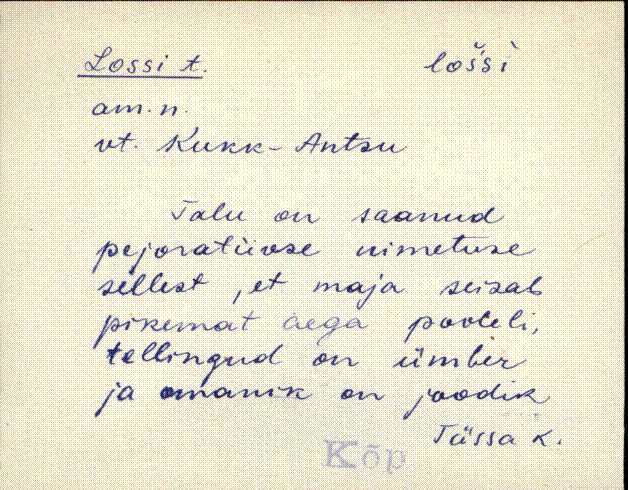 Lossi t. lošsi
am. n.
vt. Kukk-Antsu
Talu on saanud
pejoratiivse nimetuse
sellest, et maja seisab
pikemat aega pooleli,
tellingud on ümber
ja omanik on joodik
Tässa k.
Kõp